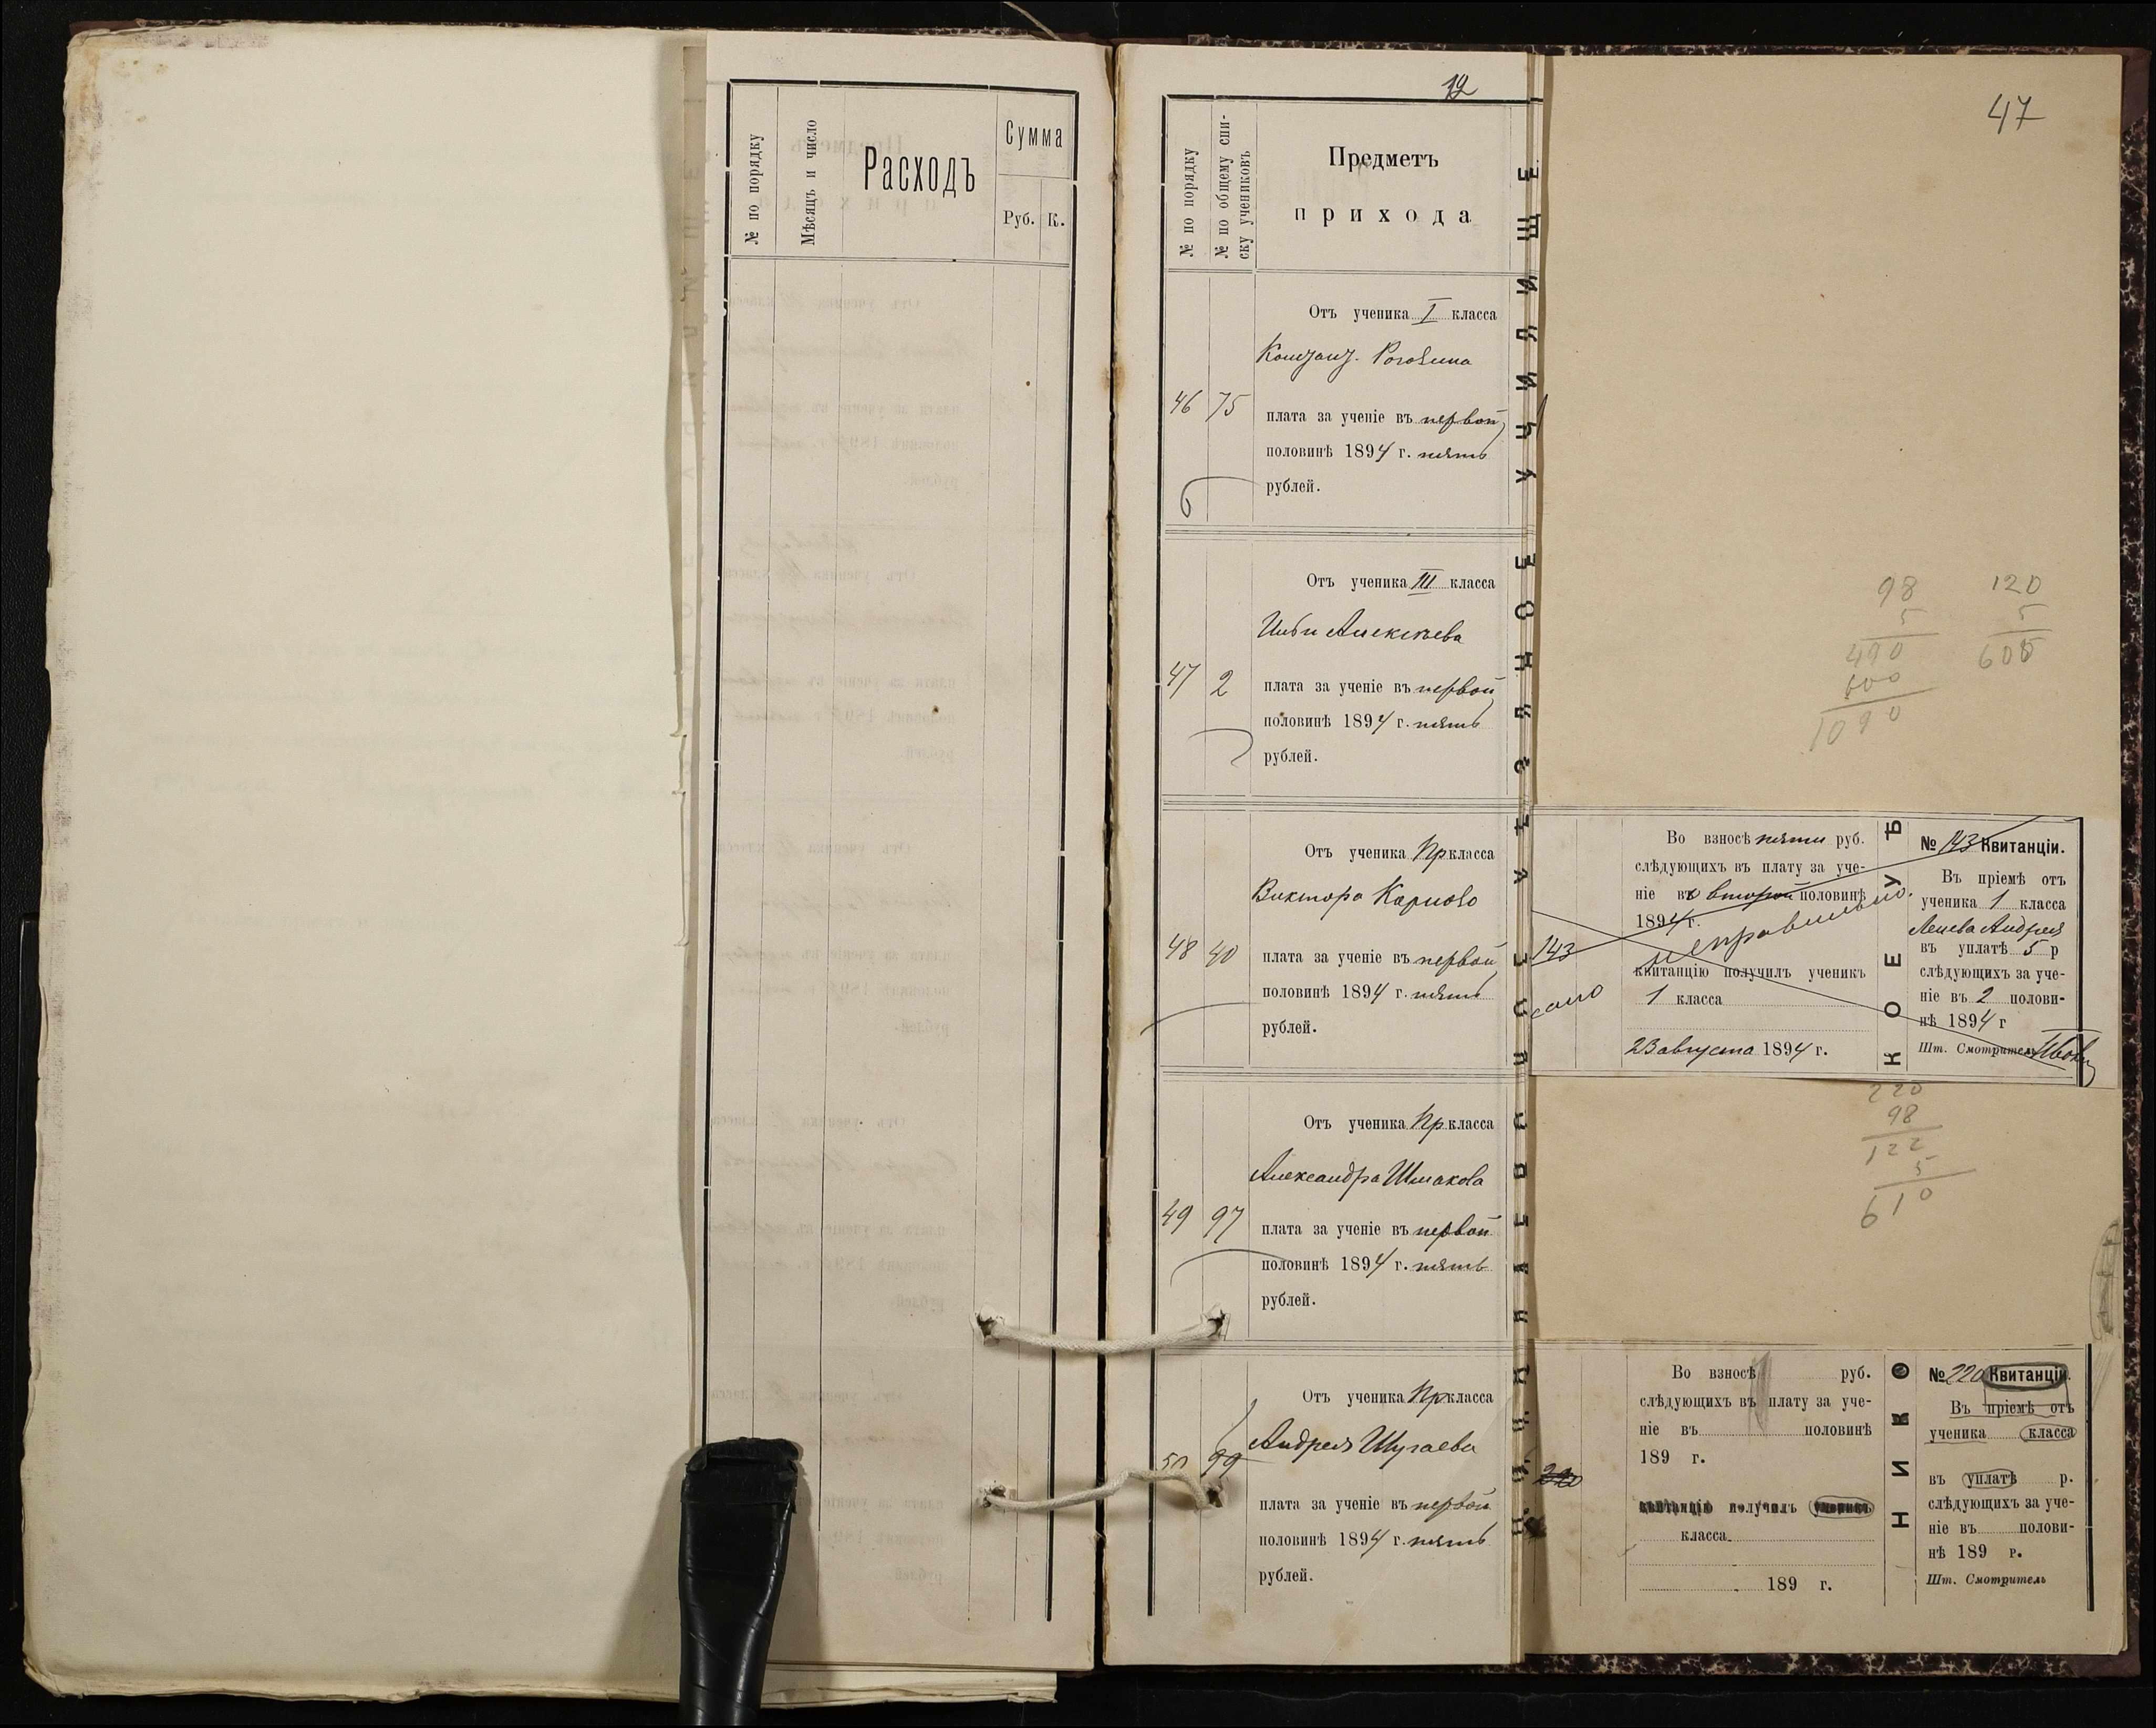 № по порядку
Мѣсяцъ и число
Расходъ
Сумма
Руб. К.
12
№ по порядку
№ по общему спи-
ску учениковъ
Предметъ
прихода
Отъ ученика I класса
46 75
плата за ученіе въ первой
половинѣ 1894 г. пять
рублей.
Отъ ученика III класса
Ильи Алексѣева
47 2
плата за ученіе въ первой
половинѣ 1894 г. пять
рублей.
Отъ ученика Пр. класса
Виктора
48 40
плата за ученіе въ первой
половинѣ 1894 г. пять
рублей.
Отъ ученика Пр. класса
Александра Шмакова
49 97
плата за ученіе въ первой
половинѣ 1894 г. пять
рублей.
Отъ ученика Пр. класса
Андрея Шугаева
50 99
плата за ученіе въ первой
половинѣ 1894 г. пять
рублей.
УѢЗДНОЕ УЧИЛИЩЕ
47
98
5
490
600
1090
120
5
600
143
Во взносѣ пяти руб.
слѣдующихъ въ плату за уче-
ніе въ второй половинѣ
1894 г.
неправильно
квитанцію получилъ ученикъ
1 класса
23 августа 1894 г.
КОЕ УѢ
№ 143 Квитанціи.
Въ пріемѣ отъ
ученика 1 класса
Андрея
въ уплатѣ 5 р
слѣдующихъ за уче-
ніе въ 2 полови-
нѣ 1894 г
Шт. Смотритель
220
98
122
5
610
220
Во взносѣ руб.
слѣдующихъ въ плату за уче-
ніе въ половинѣ
189 г.
квитанцію получилъ ученикъ
класса
189 г.
НИКО
№ 220 Квитанціи.
Въ пріемѣ отъ
ученика класса
въ уплатѣ р.
слѣдующихъ за уче-
ніе въ полови-
нѣ 189 г.
Шт. Смотритель